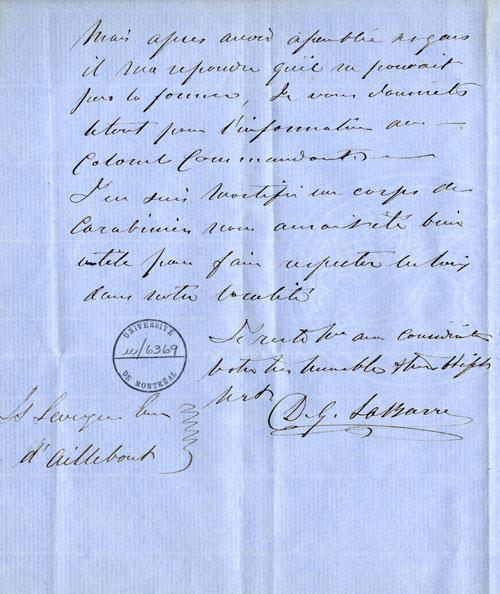 Mais apres avoir assemblée
il ma repondu qu'il ne pouvait
pas la former, Je vous soumets
letout pour l'information du
Colonel Commandant.
J'en suis mortifié un corps de
Carabiniers nous aurait été bien
utile pour fair respecter les lois
dans notre localité
Je reste Mr avec consideration
votre tres humble & tres
Sert
D. G. LaBarre
UNIVERSITÉ
DE MONTRÉAL
/6369
Ls Levesque
d'Aillebout